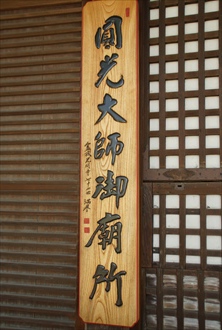 圓光大師御廟所